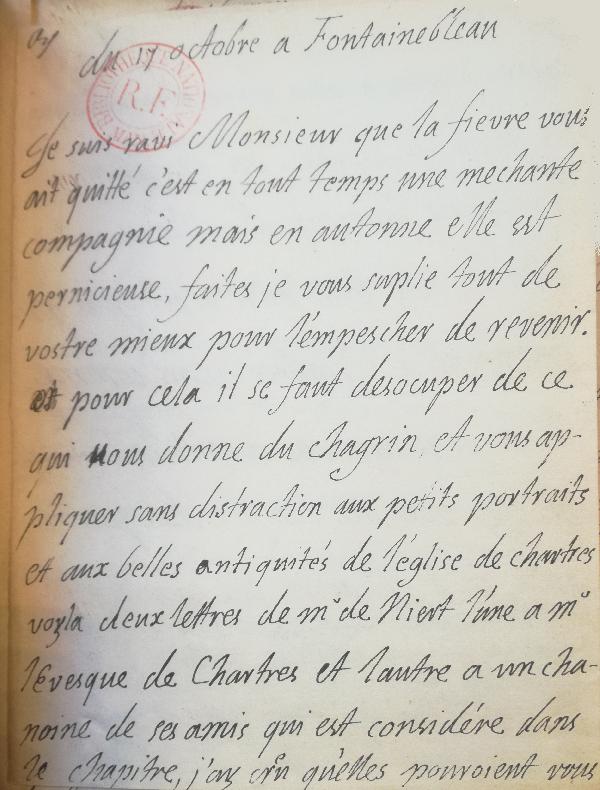 du 17 octobre a Fontainebleau
BIBLIOTHEQUE NATIONALE
R.F.
Je suis ravi Monsieur que la fievre vous
ait quitté c'est en tout temps une mechante
compagnie mais en automne elle est
pernicieuse, faites je vous suplie tout de
vostre mieux pour l'empescher de revenir.
et pour cela il se faut desocuper de ce
qui vous donne du chagrin et vous ap-
pliquer sans distraction aux petits portraits
et aux belles antiquités de l'église de chartres
voyla deux lettres de mr de Niert l'une a mr
lévesque de Chartres et lautre a un cha-
noine de ses amis qui est considére dans
le chapitre, j'ay crû qu'elles pouroient vous